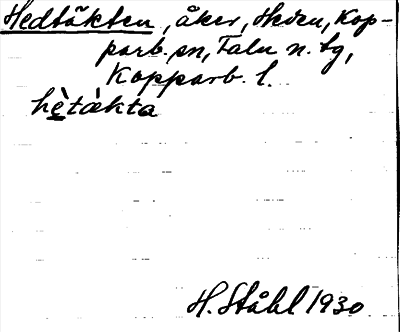 Hedtäkten, åker, Heden, Kop-
parb. sn, Falu n. tg,
Kopparb. l.
hètàkta
H. Ståhl 1930